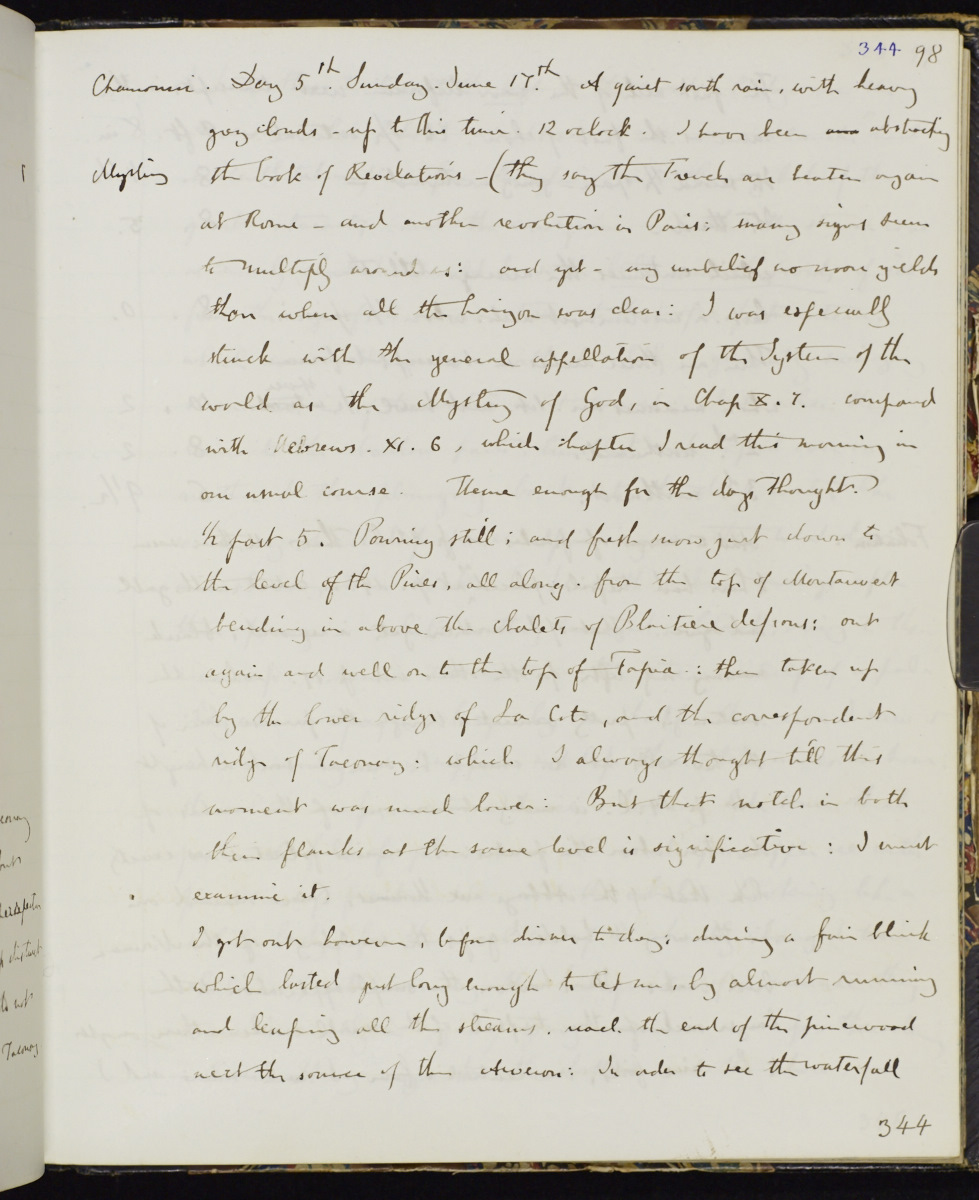 344 98
Chamouni. Day 5th. Sunday. June 17th. A quiet south rain, with heavy
grey clouds - up to this time. 12 oclock. I have been abstracting
Mystery the book of Revelations - (they say the French are beaten again
at Rome - and another revolution in Paris: many signs seem
to multiply around us: and yet - my unbelief no more yields
than when all the horizon was clear: I was especially
struck with the general appellation of the System of the
world as the Mystery of God, in Chap X. 7. compared
with Hebrews. XI. 6, which chapter I read this morning in
our usual course. Theme enough for the days thought.)
1/2 past 5. Pouring still; and fresh snow just down to
the level of the Pines, all along. from the top of Montanvert
bending in above the chalets of Blaitiere dessous; out
again and well on to the top of Tapia: then taken up
by the lower ridge of La Cote, and the correspondent
ridge of Taconay: which I always thought till this
moment was much lower: But that notch in both
their flanks at the same level is significative: I must
examine it.
I got out however, before dinner to day; during a fair blink
which lasted just long enough to let me, by almost running
and leaping all the streams, reach the end of the pinewood
next the source of the Arveron: In order to see the waterfall
344